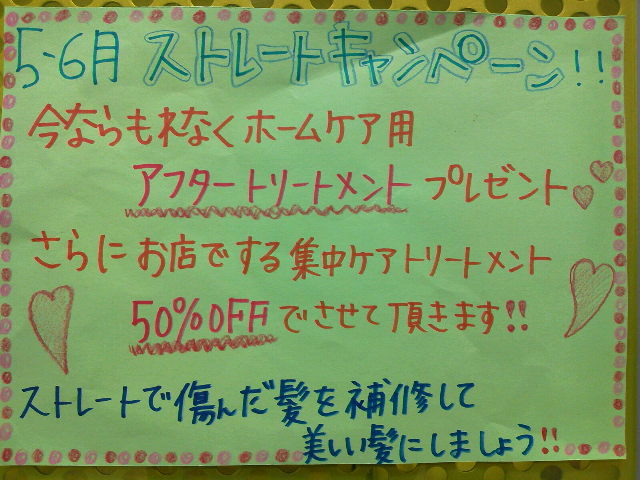 5·6月 ストレートキャンペーン!!
今ならもれなくホームケア用
アフタートリートメント プレゼント
さらにお店でする集中ケアトリートメント
50%OFFでさせて頂きます!!
ストレートで傷んだ髪を補修して
美しい髪にしましょう!!